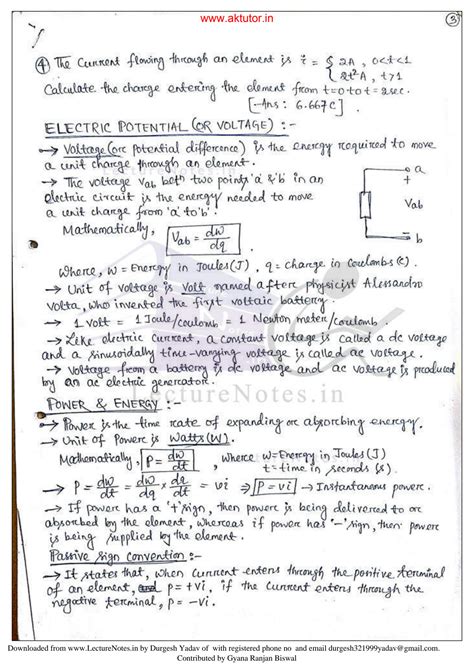 www.aktutor.in
3
④ The current flowing through an element is i = { 2A, 0<t<1
2t²A, t>1
Calculate the charge entering the element from t=0 to t=2sec.
[-Ans: 6.667C].
ELECTRIC POTENTIAL (OR VOLTAGE) :-
→ Voltage (or potential difference) is the energy required to move
a unit charge through an element.
→ The voltage Vab betn two points 'a' & 'b' in an
electric circuit is the energy needed to move
a unit charge from 'a' to 'b'.
a
Vab
b
Mathematically, Vab = dw/dq.
Where, w = Energy in Joules (J), q = charge in Coulombs (C).
→ Unit of voltage is Volt named after physicist Alessandro
Volta, who invented the first voltaic battery.
→ 1 volt = 1 Joule/coulomb = 1 Newton meter/coulomb.
→ Like electric current, a constant voltage is called a dc voltage
and a sinusoidally time-varying voltage is called ac voltage.
→ Voltage from a battery is dc voltage and ac voltage is produced
by an ac electric generator.
LectureNotes.in
POWER & ENERGY :-
→ Power is the time rate of expanding or absorbing energy.
→ Unit of Power is Watts (W).
Mathematically, P = dw/dt, where w = Energy in Joules (J)
t = time in seconds (s).
→ P = dw/dt = dw/dq × dq/dt = vi ⇒ P = vi → Instantaneous power.
→ If power has a '+' sign, then power is being delivered to or
absorbed by the element, whereas if power has '-' sign, then power
is being supplied by the element.
Passive sign convention :-
→ It states that, when current enters through the positive terminal
of an element, p = +vi, if the current enters through the
negative terminal, p = -vi.
Downloaded from www.LectureNotes.in by Durgesh Yadav of with registered phone no and email durgesh321999yadav@gmail.com.
Contributed by Gyana Ranjan Biswal